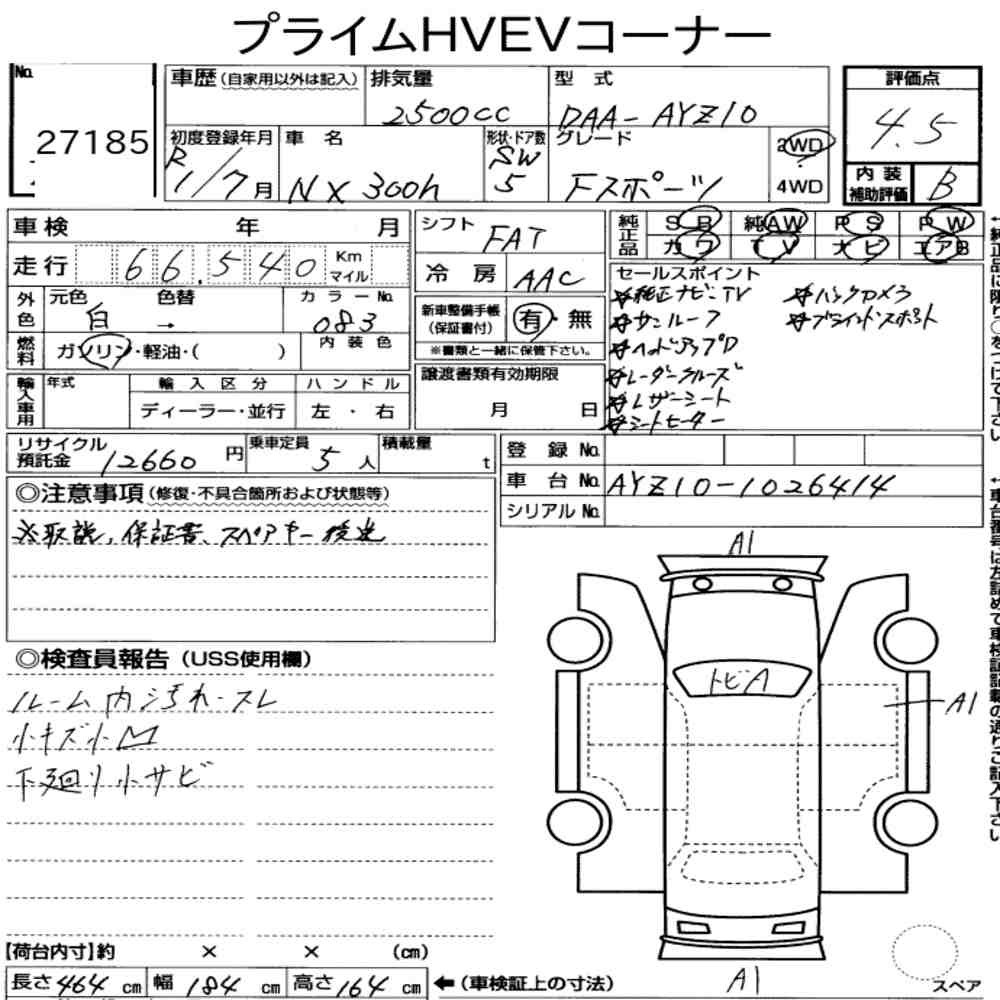 プライムHVEVコーナー
No. 27185
車歴(自家用以外は記入) 排気量 2500cc 型式 DAA-AYZ10
評価点 4.5
初度登録年月 R1/7月 車名 NX300h 形状・ドア数 SW 5 グレード Fスポーツ 2WD 4WD
内装補助評価 B
車検 年 月
シフト FAT
純正品 SR 純AW PS PW
カワ TV ナビ エアB
走行 66,540 Km マイル
冷房 AAC
外色 元色 白 色替 → カラーNo. 083
燃料 ガソリン・軽油・( ) 内装色
新車整備手帳(保証書付) 有・無
※書類と一緒に保管下さい。
セールスポイント
純正ナビ・TV バックカメラ
サンルーフ ブラインドスポット
ヘッドアップD
レーダークルーズ
レザーシート
シートヒーター
輸入車用 年式 輸入区分 ハンドル
ディーラー・並行 左・右
譲渡書類有効期限 月 日
リサイクル預託金 12660円 乗車定員 5人 積載量 t
登録No.
車台No. AYZ10-1026414
シリアルNo.
◎注意事項(修復・不具合箇所および状態等)
※取説,保証書、スペアキー後送
◎検査員報告(USS使用欄)
ルーム内汚れ・スレ
小キズ小凹
下廻り小サビ
A1
トビA
A1
A1
スペア
【荷台内寸】約 × × (cm)
長さ464cm 幅184cm 高さ164cm ←(車検証上の寸法)
←純正品に限り○をつけて下さい
←車台番号は左詰めで車検証記載の通りご記入下さい